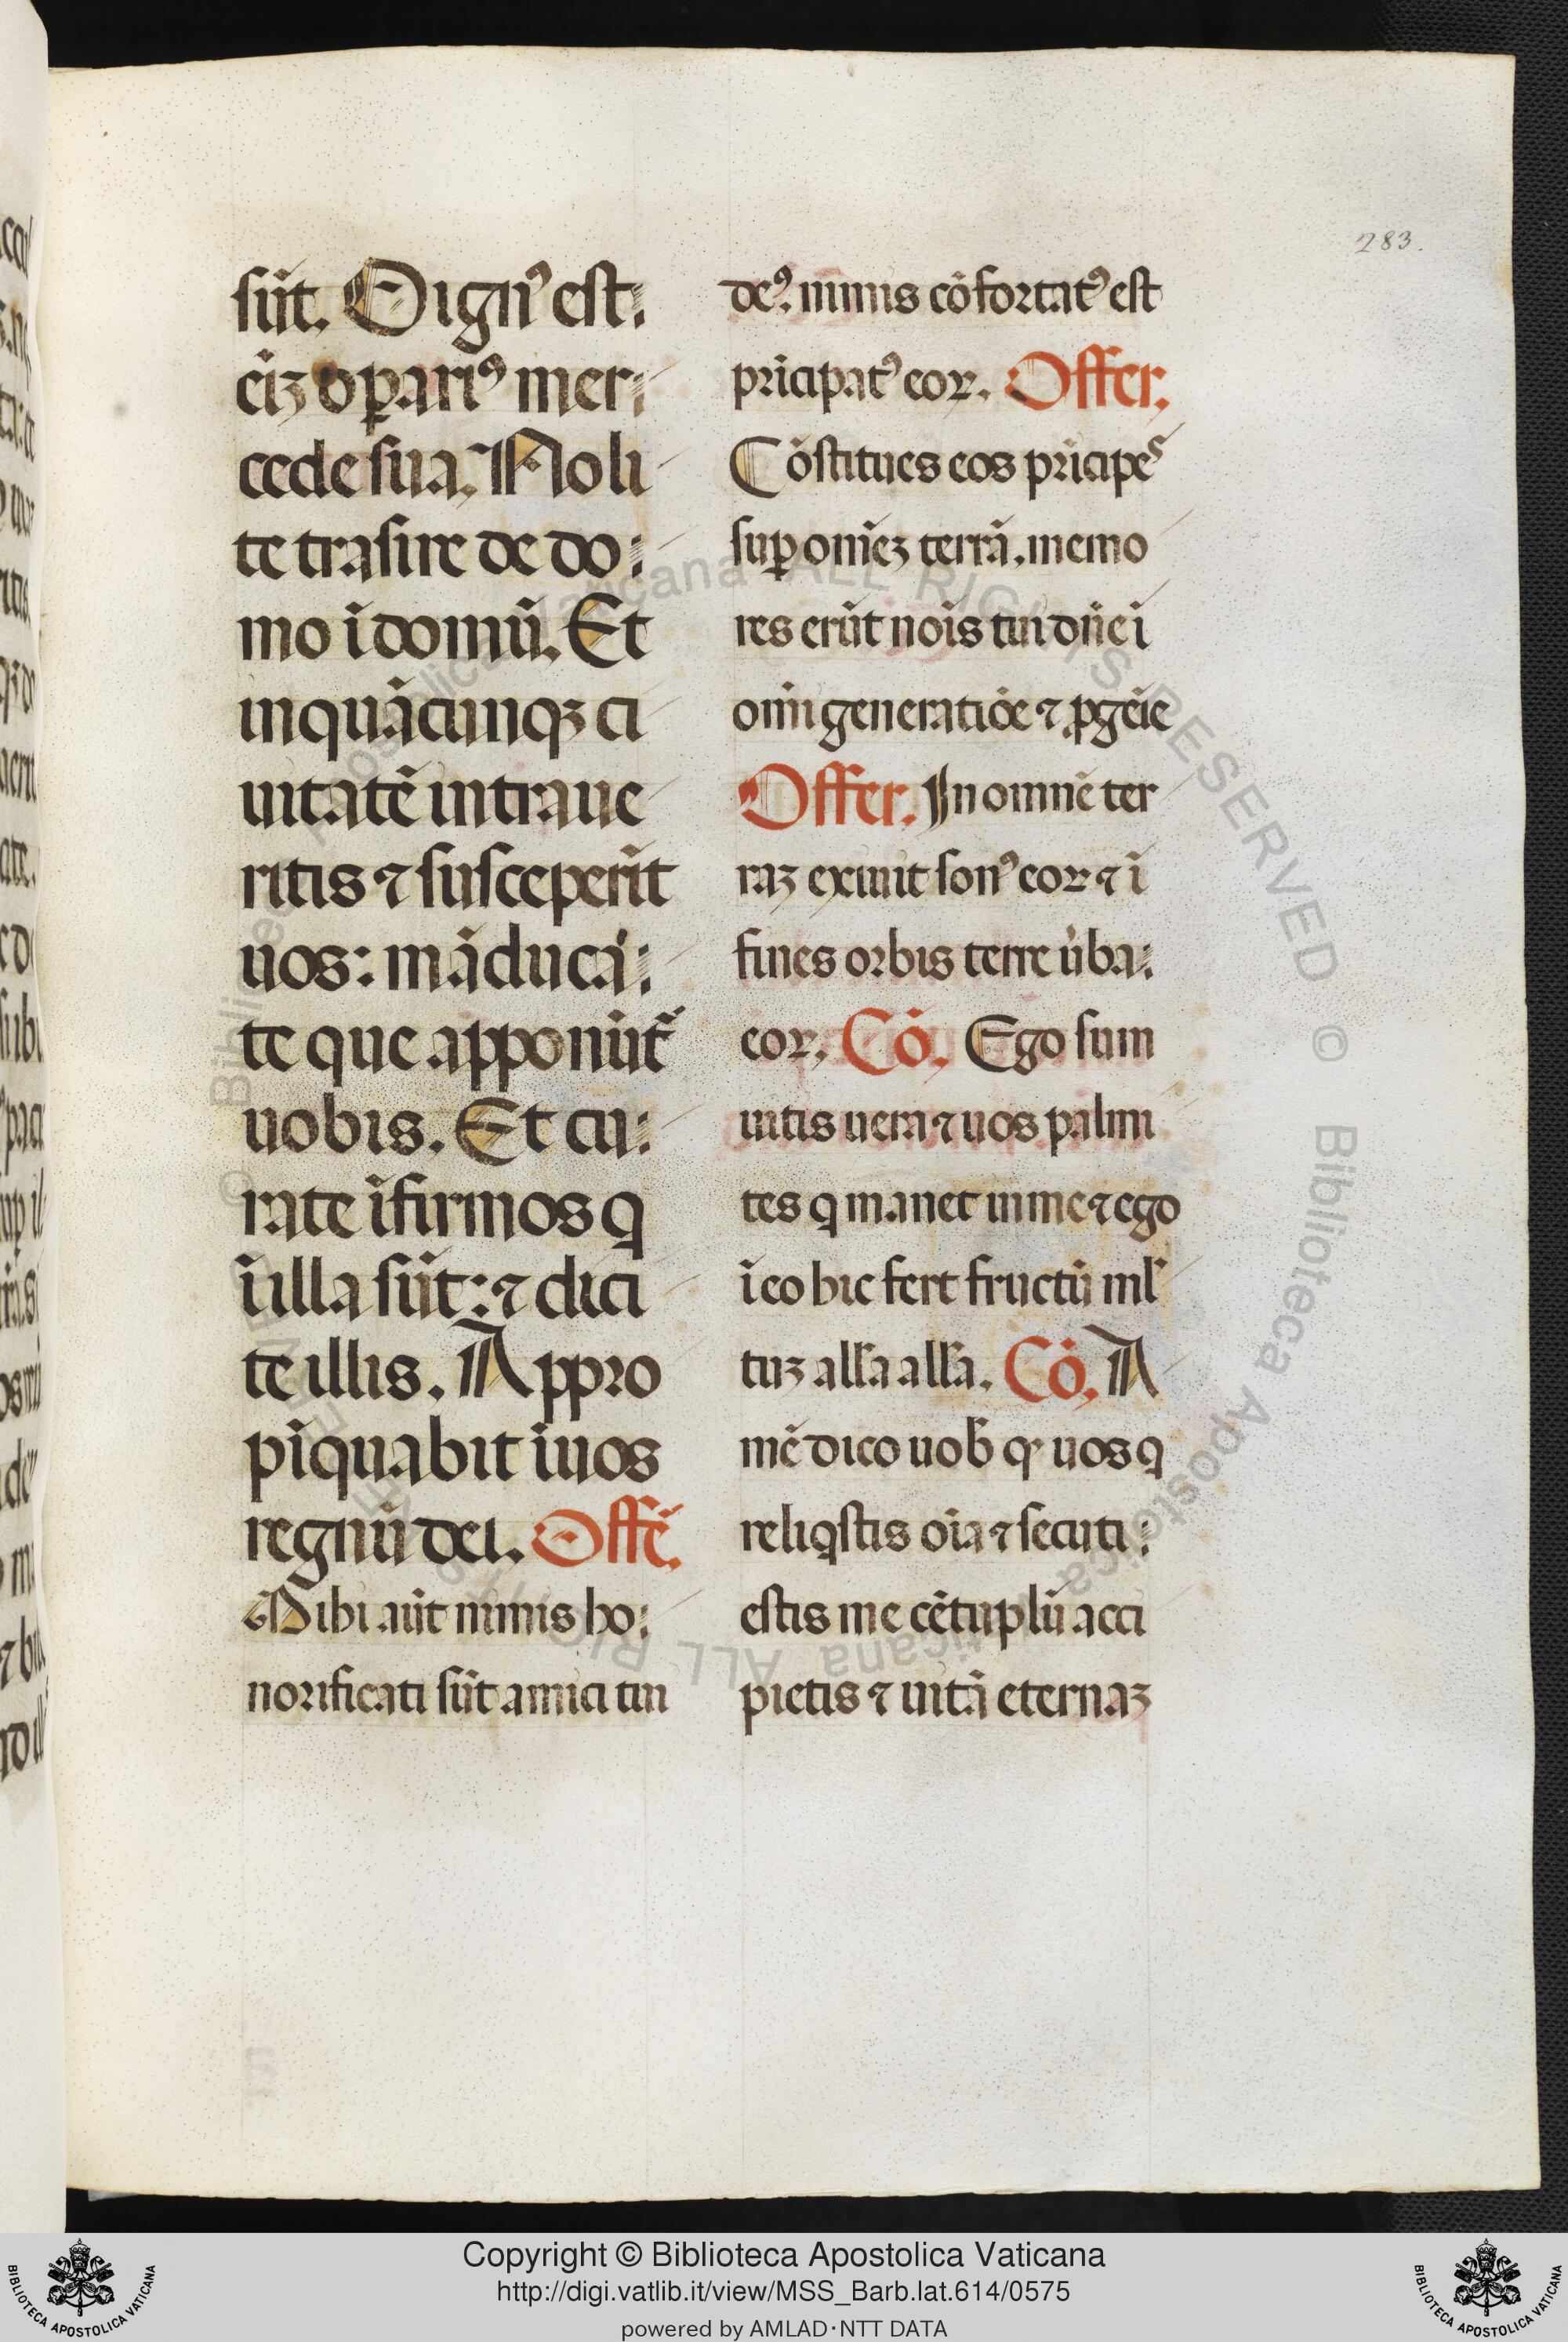 283.
sūt. Dign⁹ est:
ēi⁊ opari⁹ mer:
cede sua. Noli
te trasire de do:
mo ī domū. Et
in quācunqꝫ ci
uitatē intraue
ritis ⁊ susceperīt
uos: māduca:
te que apponūt᷑
uobis. Et cu:
rate īfirmos q
ī illa sūt: ⁊ dici
te illis. Appro
pīquabit ī uos
regnū dei. Offē.
Mihi aūt nimis ho:
norificati sūt amici tui
de⁹. nimis cōfortat⁹ est
prīcipat⁹ eoꝝ. Offer.
Cōstitues eos prīcipes
suꝑ omēꝫ terrā. memo
res erūt noīs tui dn̄e ī
omī generatiōe ⁊ ꝓgēie
Offer. In omnē ter
raꝫ exiuit son⁹ eoꝝ ⁊ ī
fines orbis terre ūba:
eoꝝ. Cō. Ego sum
uitis uera ⁊ uos palmi
tes q manet in me ⁊ ego
ī eo hic fert fructū ml̄
tuꝫ all̄a all̄a. Cō. A
mē dico uob̄ qꝫ uos q
reliqstis oīa ⁊ secuti:
estis me cētuplū acci
pietis ⁊ uitā eternaꝫ
© Biblioteca Apostolica Vaticana ALL RIGHTS RESERVED © Biblioteca Apostolica Vaticana ALL RIGHTS RESERVED
BIBLIOTECA APOSTOLICA VATICANA
Copyright © Biblioteca Apostolica Vaticana
http://digi.vatlib.it/view/MSS_Barb.lat.614/0575
powered by AMLAD·NTT DATA
BIBLIOTECA APOSTOLICA VATICANA